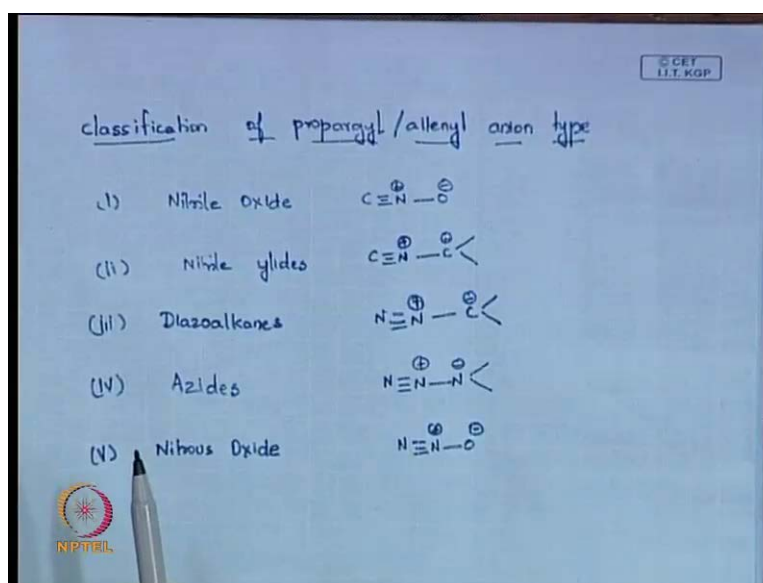 © CET
I.I.T. KGP
classification of propargyl/allenyl anion type
(I) Nitrile Oxide C≡N⊕—O⊖
(II) Nitrile ylides C≡N⊕—C⊖
(III) Diazoalkanes N≡N⊕—C⊖
(IV) Azides N≡N⊕—N⊖
(V) Nitrous Oxide N≡N⊕—O⊖
NPTEL